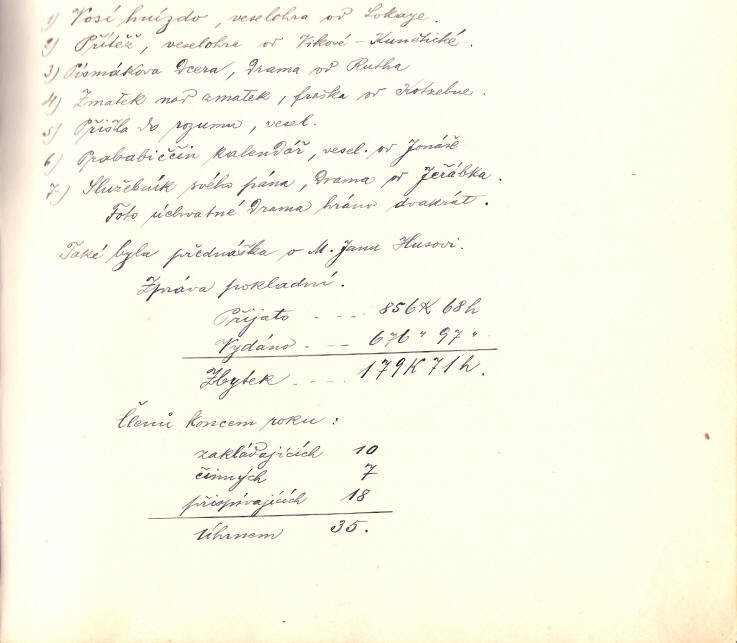 1) Vosí hnízdo, veselohra od Lokaye.
2) Přítěž, veselohra od Vikové-Kunětické.
3) Písmákova Dcera, Drama od Rutha
4) Zmatek nad zmatek, fraška od Kotzebue.
5) Přišla do rozumu, vesel.
6) Prababiččin kalendář, vesel. od Jonáše
7) Služebník svého pána, Drama od Jeřábka.
Toto úchvatné Drama hráno dvakrát.
Také byla přednáška o M. Janu Husovi.
Zpráva pokladní.
Přijato . - - . 856K 68h
Vydáno . - - 676 " 97 "
Zbytek . - - . 179K 71h.
Členů koncem roku :
zakládajících 10
činných 7
přispívajících 18
Úhrnem 35.